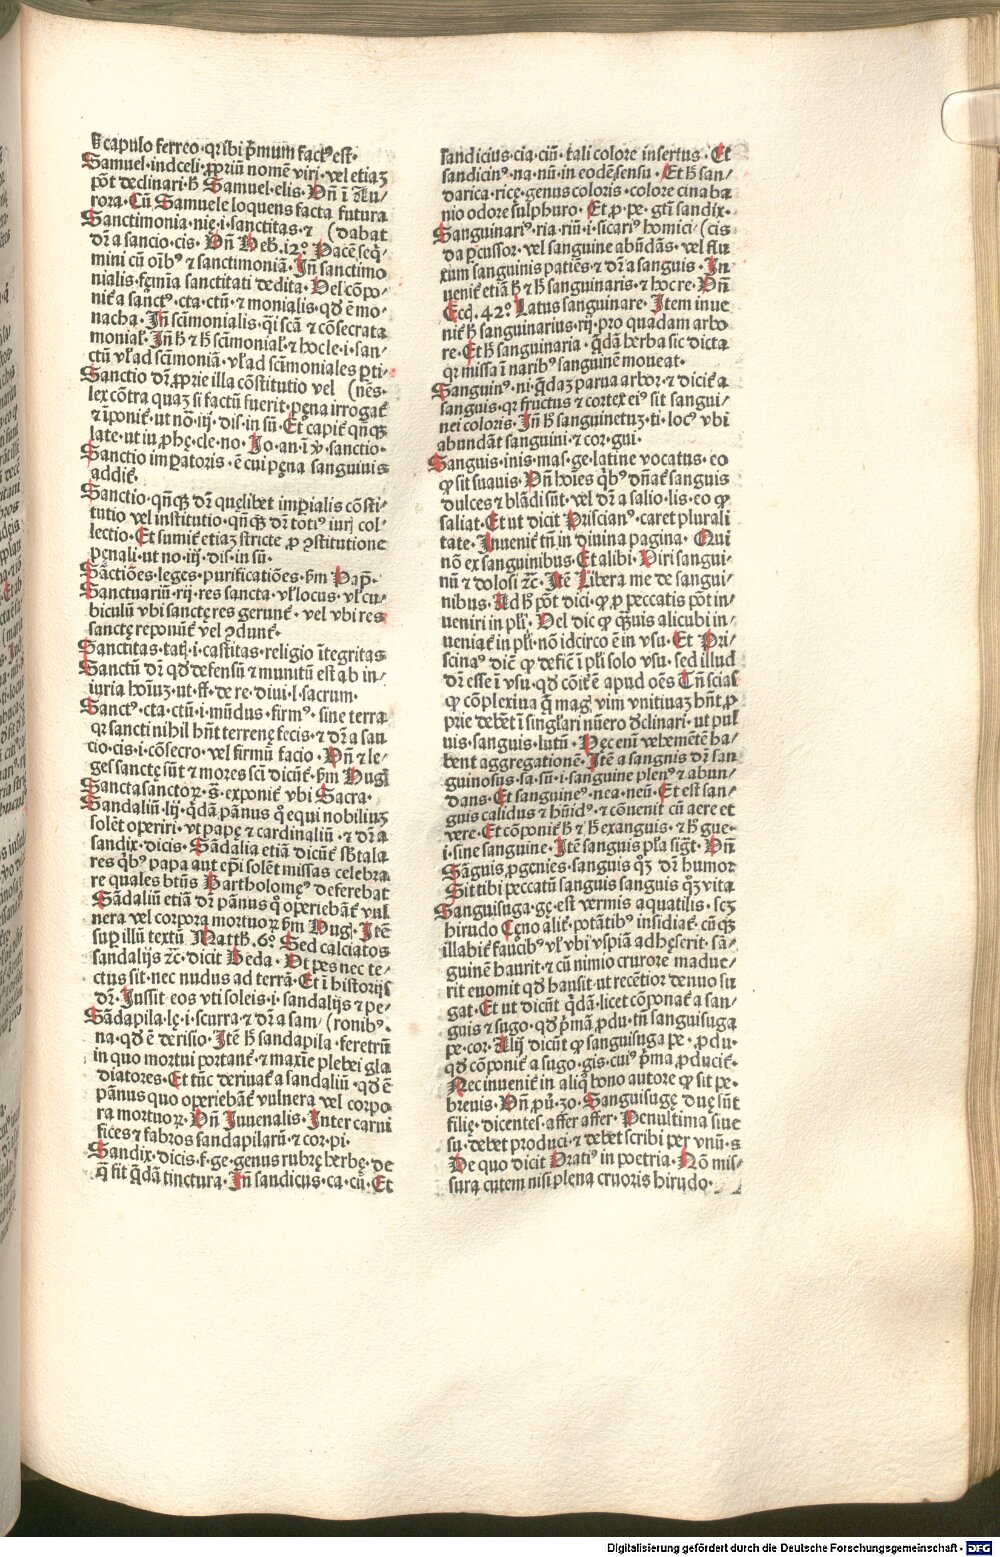 capulo ferreo·qr sibi p̄mum factꝰ est·
Samuel·indceli·ꝓpriū nomē viri·vel etiaꝫ
pōt declinari·ħ Samuel·elis·Vn̄ ī Au/
rora·Cū Samuele loquens facta futura
Sanctimonia·nię·i·sanctitas·⁊ (dabat
dr̄ a sancio·cis·Vn̄ Heb·12° Pacē seq̄·
mini cū oībꝰ ⁊ sanctimoniā·Jn̄ sanctimo
nialis·fęmīa sanctitati dedita·Vel cōpo·
nit̄ a sanctꝰ·cta·ctū·⁊ monialis·qd̄ ē mo·
nacha·Jn̄ scīmonialis·q̄i scā ⁊ cōsecrata
monial̓·Jn̄ ħ ⁊ ħ scīmonial̓·⁊ hoc le·i·san/
ctū vl̓ ad scīmoniā·vl̓ ad scīmoniales ꝑti·
Sanctio dr̄ ꝓprie illa cōstitutio vel (nēs·
lex cōtra quaꝫ si factū fuerit·pęna irrogat̄
⁊ īponit̄·ut nō·iij·dis·in sū·Et capit̄ qn̄qꝫ
late·ut iu ꝓhę·cle·no·Jo·an·ī ꝟ·sanctio·
Sanctio imꝑatoris·ē cui pęna sanguinis
addit̄·
Sanctio·qn̄qꝫ dr̄ quęlibet imꝑialis cōsti/
tutio vel institutio·qn̄qꝫ dr̄ totiꝰ iurꝭ col/
lectio·Et sumit̄ etiaꝫ stricte ꝓ ꝯstitutione
pęnali·ut no·iij·dis·in sū·
Sāctiōes·leges·purificatiōes·ẜm Pap̄·
Sanctuariū·rij·res sancta·vl̓ locus·vl̓ cu/
biculū vbi sanctę res gerunt̄·vel vbi res
sanctę reponūt̄ vel ꝯdunt̄·
Sanctitas·tatꝭ·i·castitas·religio ītegritas
Sanctū dr̄ qd̄ defensū ⁊ munitū est ab in/
iuria hoīuꝫ·ut·ff·de re·diui·l·sacrum·
Sanctꝰ·cta·ctū·i·mūdus·firmꝰ·sine terra
qr sancti nihil hn̄t terrenę fecis·⁊ dr̄ a san
cio·cis·i·cōsecro·vel firmū facio·Vn̄ ⁊ le·
ges sanctę sūt ⁊ mores scī dicūt̄·ẜm Hugͨ
Sancta sanctorꝝ·g̊·exponit̄ vbi Sacra·
Sandaliū·lij·q̄dā pānus q̊ equi nobiliuꝫ
solēt operiri·vt papę ⁊ cardinaliū·⁊ dr̄ a
sandix·dicis·Sādalia etiā dicūt̄ sb̄tala
res q̄bꝰ papa aut ep̄i solēt missas celebra
re quales btn̄s Bartholomeꝰ deferebat
Sādaliū etiā dr̄ pānus q̊ operiebāt̄ vul
nera vel corpora mortuorꝝ ẜm Hugͨ·Jtē
suꝑ illū textū Matth·6° Sed calciatos
sandalijs ⁊c·dicit Beda·Vt pes nec te/
ctus sit·nec nudus ad terrā·Et ī historijs
dr̄·Jussit eos vti soleis·i·sandalijs ⁊ pe/
Sādapila·lę·i·scurra·⁊ dr̄ a sam/ (ronibꝰ·
na·qd̄ ē derisio·Jtē ħ sandapila·feretrū
in quo mortui portant̄·⁊ maxīe plebei gla
diatores·Et tūc deriuat̄ a sandaliū·qd̄ ē
pānus quo operiebāt̄ vulnera vel corpo
ra mortuorꝝ·Vn̄ Juuenalis·Jnter carni
fices ⁊ fabros sandapilarū·⁊ cor·pi·
Sandix·dicis·f·ge·genus rubrę herbę·de
q̄ fit q̄dā tinctura·Jn̄ sandicus·ca·cū·Et
sandicius·cia·ciū·tali colore insertus·Et
sandicinꝰ·na·nū·in eodē sensu·Et ħ san/
darica·ricę·genus coloris·colore cinaba
nio odore sulphuro·Et ꝓ·pe·gtī sandix·
Sanguinariꝰ·ria·riū·i·sicariꝰ homici/ (cis
da ꝑcussor·vel sanguine abūdās·vel flu
xum sanguinis patiēs·⁊ dr̄ a sanguis·Jn
uenit̄ etiā ħ ⁊ ħ sanguinaris·⁊ hoc re·Vn̄
Ecq·42° Latus sanguinare·Jtem inue
nit̄ ħ sanguinarius·rij·pro quadam arbo
re·Et ħ sanguinaria·q̄dā herba sic dicta
qr missa ī naribꝰ sanguinē moueat·
Sanguinꝰ·ni·q̄daꝫ parua arbor·⁊ dicit̄ a
sanguis·qr fructus ⁊ cortex eiꝰ sit sangui/
nei coloris·Jn̄ ħ sanguinetuꝫ·ti·locꝰ vbi
abundāt sanguini·⁊ cor·gui·
Sanguis·inis·mas·ge·latine vocatus·eo
ꝙ sit suauis·Vn̄ hoīes q̄bꝰ dn̄at̄ sanguis
dulces ⁊ blādi sūt·vel dr̄ a salio·lis·eo ꝙ
saliat·Et ut dicit Priscianꝰ·caret plurali
tate·Jnuenit̄ tn̄ in diuina pagina·Qui
nō ex sanguinibus·Et alibi·Viri sangui/
nū ⁊ dolosi ⁊c·Jtē Libera me de sangui/
nibus·Ad ħ pōt dici·ꝙ ꝓ peccatis pōt in/
ueniri in pl̓i·Vel dic ꝙ q̄uis alicubi in/
ueniat̄ in pl̓i·nō idcirco ē in vsu·Et Pri/
scinaꝰ dic̄ ꝙ defic̄ ī pl̓i solo vsu·sed illud
dr̄ esse ī vsu·qd̄ cōit̄ ē apud oēs Tn̄ scias
ꝙ cōplexiua q̄ magꝭ vim vnitiuaꝫ hn̄t ꝓ
prie debēt ī singl̓ari nūero dclinari·ut pul
uis·sanguis·lutū·Hęc enī vehemētē ha/
bent aggregationē·Jtē a sangnis dr̄ san
guinosus·sa·sū·i·sanguine plenꝰ ⁊ abun/
dans·Et sanguineꝰ·nea·neū·Et est san/
guis calidus ⁊ hūidꝰ·⁊ cōuenit cū aere et
vere·Et cōponit̄ ħ ⁊ ħ exanguis·⁊ ħ gue·
i·sine sanguine·Jtē sanguis pl̓a sigt̄·Vn̄
Sāguis ꝓgenies·sanguis qꝫ dr̄ humor
Sit tibi peccatū sanguis sanguis qꝫ vita
Sanguisuga·gę·est vermis aquatilis·scꝫ
hirudo Cęno alit̄·potātibꝰ insidiat̄·cū qꝫ
illabit̄ faucibꝰ vl̓ vbi vspiā adhęserit·sā/
guinē haurit·⁊ cū nimio cruore madue/
rit euomit qd̄ hausit·ut recētior denuo su
gat·Et ut dicūt q̄dā·licet cōponat̄ a san/
guis ⁊ sugo·qd̄ p̄mā ꝓdu·tn̄ sanguisuga
pe·cor·Alij dicūt ꝙ sanguisuga pe·ꝓdu·
qd̄ cōponit̄ a sugo·gis·cuiꝰ p̄ma ꝓducit̄·
Nec inuenit̄ in aliq̊ bono autore ꝙ sit pe·
breuis·Vn̄ ꝓu·30·Sanguisugę duę sūt
filię·dicentes·affer affer·Penultima siue
su·debet produci·⁊ debet scribi per vnū·s
De quo dicit Oratiꝰ in poetria·Nō mis/
sura cutem nisi plena cruoris hirudo·
Digitalisierung gefördert durch die Deutsche Forschungsgemeinschaft · DFG